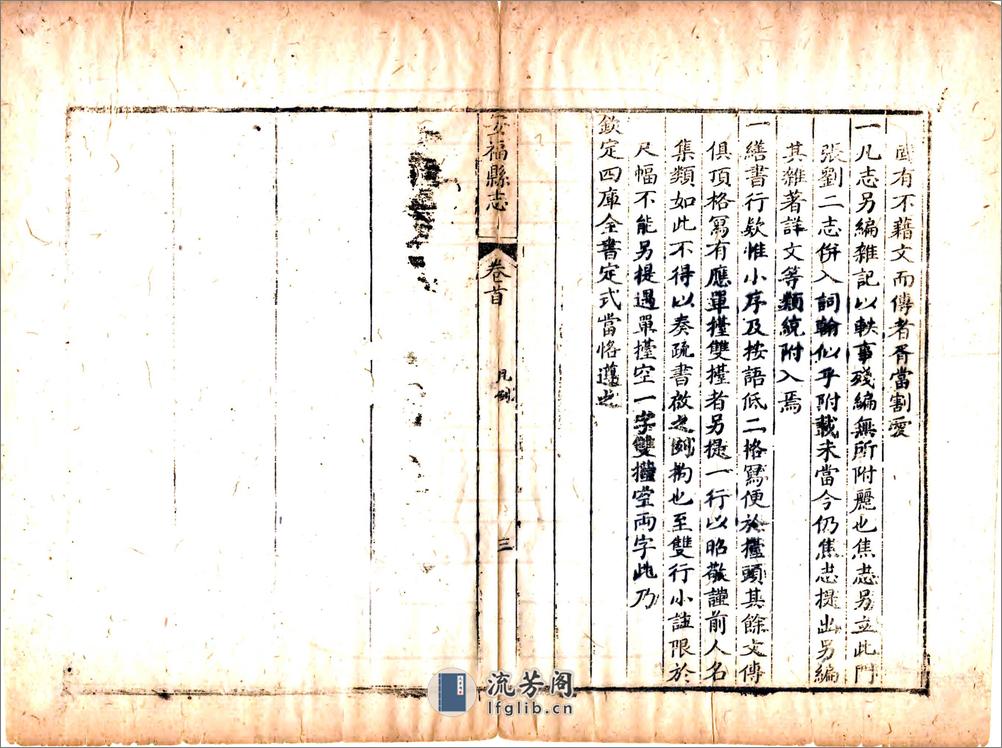 固有不藉文而傳者胥當割愛
一凡志另編雜記以軼事殘編無所附麗也焦志另立此門
張劉二志併入詞翰似乎附載未當今仍焦志提出另編
其雜著詳文等類統附入焉
一繕書行欵惟小序及按語低二格寫便於擡頭其餘文傳
俱頂格寫有應單擡雙擡者另提一行以昭敬謹前人名
集類如此不得以奏疏書啟之例拘也至雙行小註限於
尺幅不能另提遇單擡空一字雙擡空兩字此乃
欽定四庫全書定式當恪遵之
安福縣志
卷首
凡例
三
流芳阁
lfglib.cn